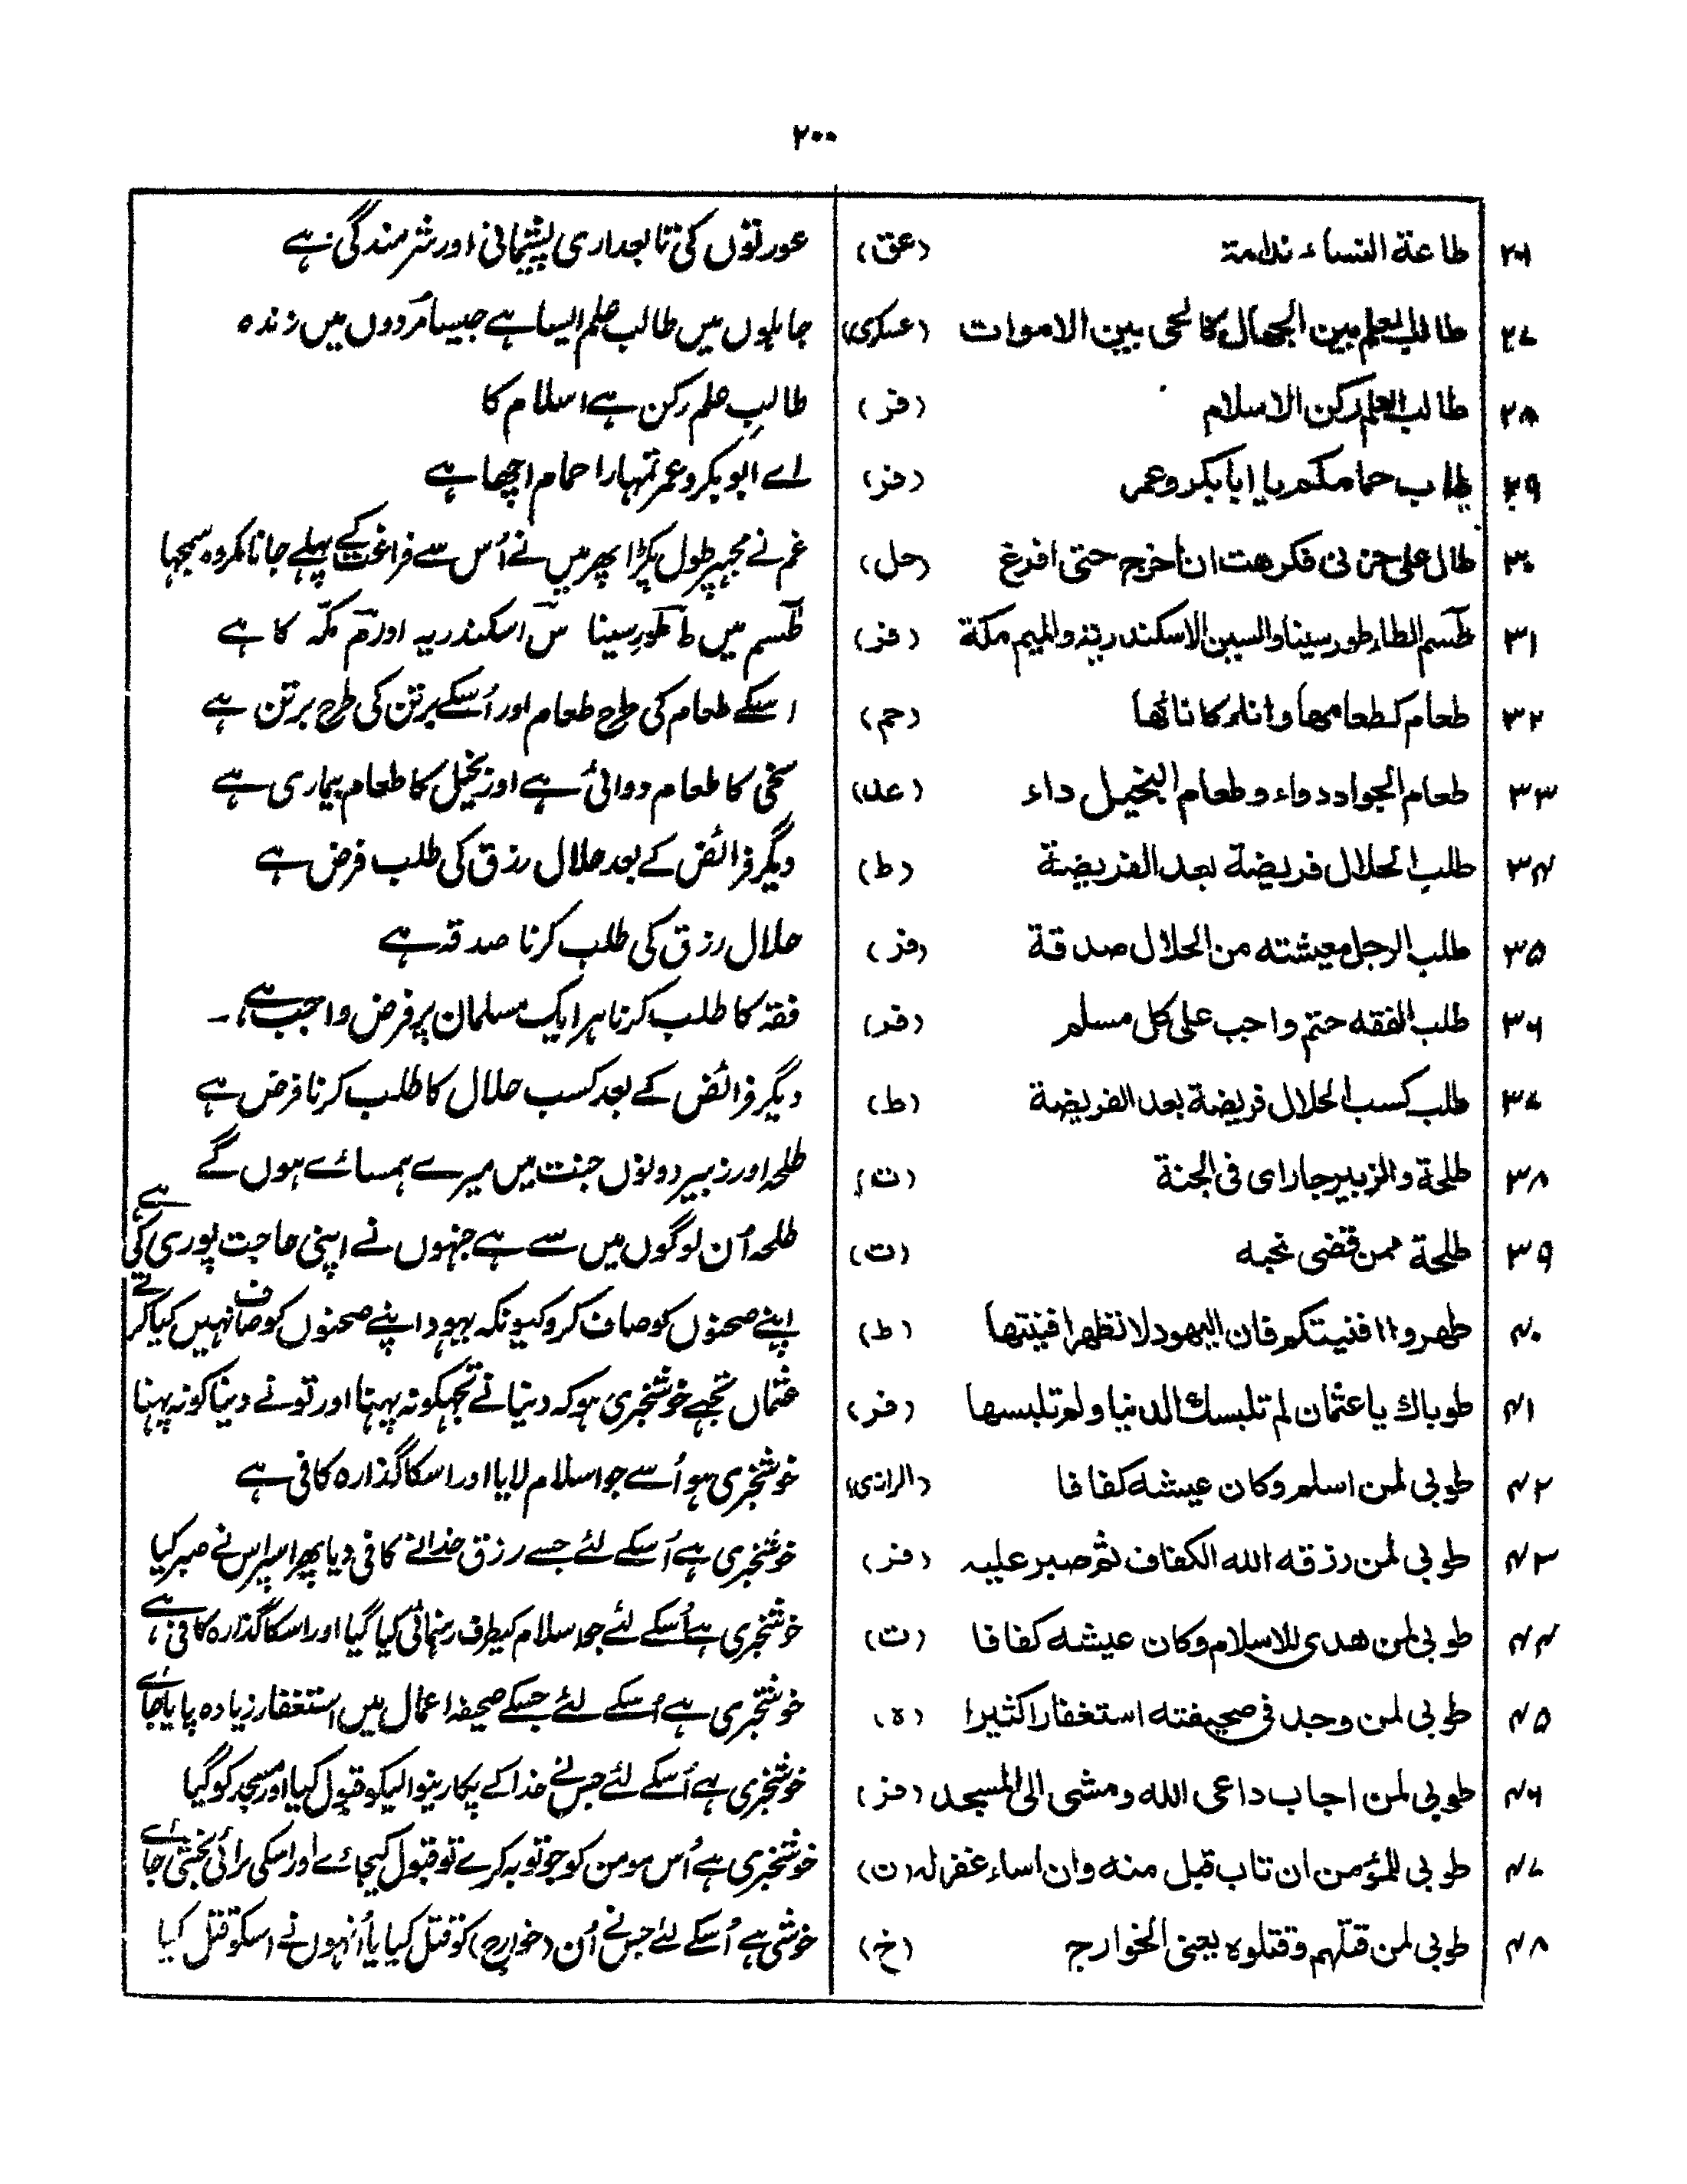 ۲۰۰
۲۶ طاعة النساء ندامة (عق) عورتوں کی تابعداری پشیمانی اور شرمندگی ہے
۲۷ طالب العلم بين الجهال كالحى بين الاموات (عسکری) جاہلوں میں طالب علم ایسا ہے جیسا مُردوں میں زندہ
۲۸ طالب العلم ركن الاسلام (فر) طالبِ علم رکن ہے اسلام کا
۲۹ طاب حمامكم يا ابا بكر وعمر (فر) اے ابو بکر و عمر تمہارا حمام اچھا ہے
۳۰ طال على حزنى فكرهت ان أخرج حتى افرغ (حل) غم نے مجہپر طول پکڑا پھر میں نے اُس سے فراغت کے پہلے جانا مکروہ سمجہا
۳۱ طٓسم الطاء طور سينا والسين الاسكندرية والميم مكة (فر) طٓسم میں طٓ طورِ سینا سٓ اسکندریہ اور مٓ مکّہ کا ہے
۳۲ طعام كطعامها واناء كانائها (حم) اسکے طعام کی طرح طعام اور اُسکے برتن کی طرح برتن ہے
۳۳ طعام الجواد دواء وطعام البخيل داء (عد) سخی کا طعام دوائی ہے اور بخیل کا طعام بیماری ہے
۳۴ طلب الحلال فريضة بعد الفريضة (ط) دیگر فرائض کے بعد حلال رزق کی طلب فرض ہے
۳۵ طلب الرجل معيشته من الحلال صدقة (فر) حلال رزق کی طلب کرنا صدقہ ہے
۳۶ طلب الفقه حتم واجب على كل مسلم (فر) فقہ کا طلب کرنا ہر ایک مسلمان پر فرض واجب ہے ۔
۳۷ طلب كسب الحلال فريضة بعد الفريضة (ط) دیگر فرائض کے بعد کسب حلال کا طلب کرنا فرض ہے
۳۸ طلحة والزبير جاراى فى الجنة (ت) طلحہ اور زبیر دونوں جنت میں میرے ہمسائے ہوں گے
۳۹ طلحة ممن قضى نحبه (ت) طلحہ اُن لوگوں میں سے ہے جنہوں نے اپنی حاجت پوری کی ہے
۴۰ طهروا افنيتكم فان اليهود لا تطهر افنيتها (ط) اپنے صحنوں کو صاف کرو کیونکہ یہود اپنے صحنوں کو صاف نہیں کیا کرتے
۴۱ طوباك يا عثمان لم تلبسك الدنيا ولم تلبسها (فر) عثماں تجہے خوشخبری ہو کہ دنیا نے تجہکو نہ پہنا اور تو نے دنیا کو نہ پہنا
۴۲ طوبى لمن اسلم وكان عيشه كفافا (الرازی) خوشخبری ہو اُسے جو اسلام لایا اور اسکا گذارہ کافی ہے
۴۳ طوبى لمن رزقه الله الكفاف ثم صبر عليه (فر) خوشخبری ہے اُسکے لئے جسے رزق خدا نے کافی دیا پھر اسپر اس نے صبر کیا
۴۴ طوبى لمن هدى للاسلام وكان عيشه كفافا (ت) خوشخبری ہے اُسکے لئے جو اسلام کیطرف رہنمائی کیا گیا اور اسکا گذارہ کافی ہے ،
۴۵ طوبى لمن وجد فى صحيفته استغفارا كثيرا (ہ) خوشخبری ہے اُسکے لئے جسکے صحیفہ اعمال میں استغفار زیادہ پایا جائے
۴۶ طوبى لمن اجاب داعى الله ومشى الى المسجد (فر) خوشخبری ہے اُسکے لئے جس نے خدا کے پکارینوالیکو قبول کیا اور مسجد کو گیا
۴۷ طوبى للمؤمن ان تاب قبل منه وان اساء غفر له (ن) خوشخبری ہے اُس مومن کو جو توبہ کرے تو قبول کیجائے اور اسکی برائی بخشی جائے
۴۸ طوبى لمن قتلهم وقتلوه يعنى الخوارج (خ) خوشی ہے اُسکے لئے جس نے اُن (خوارج) کو قتل کیا یا اُنہوں نے اسکو قتل کیا